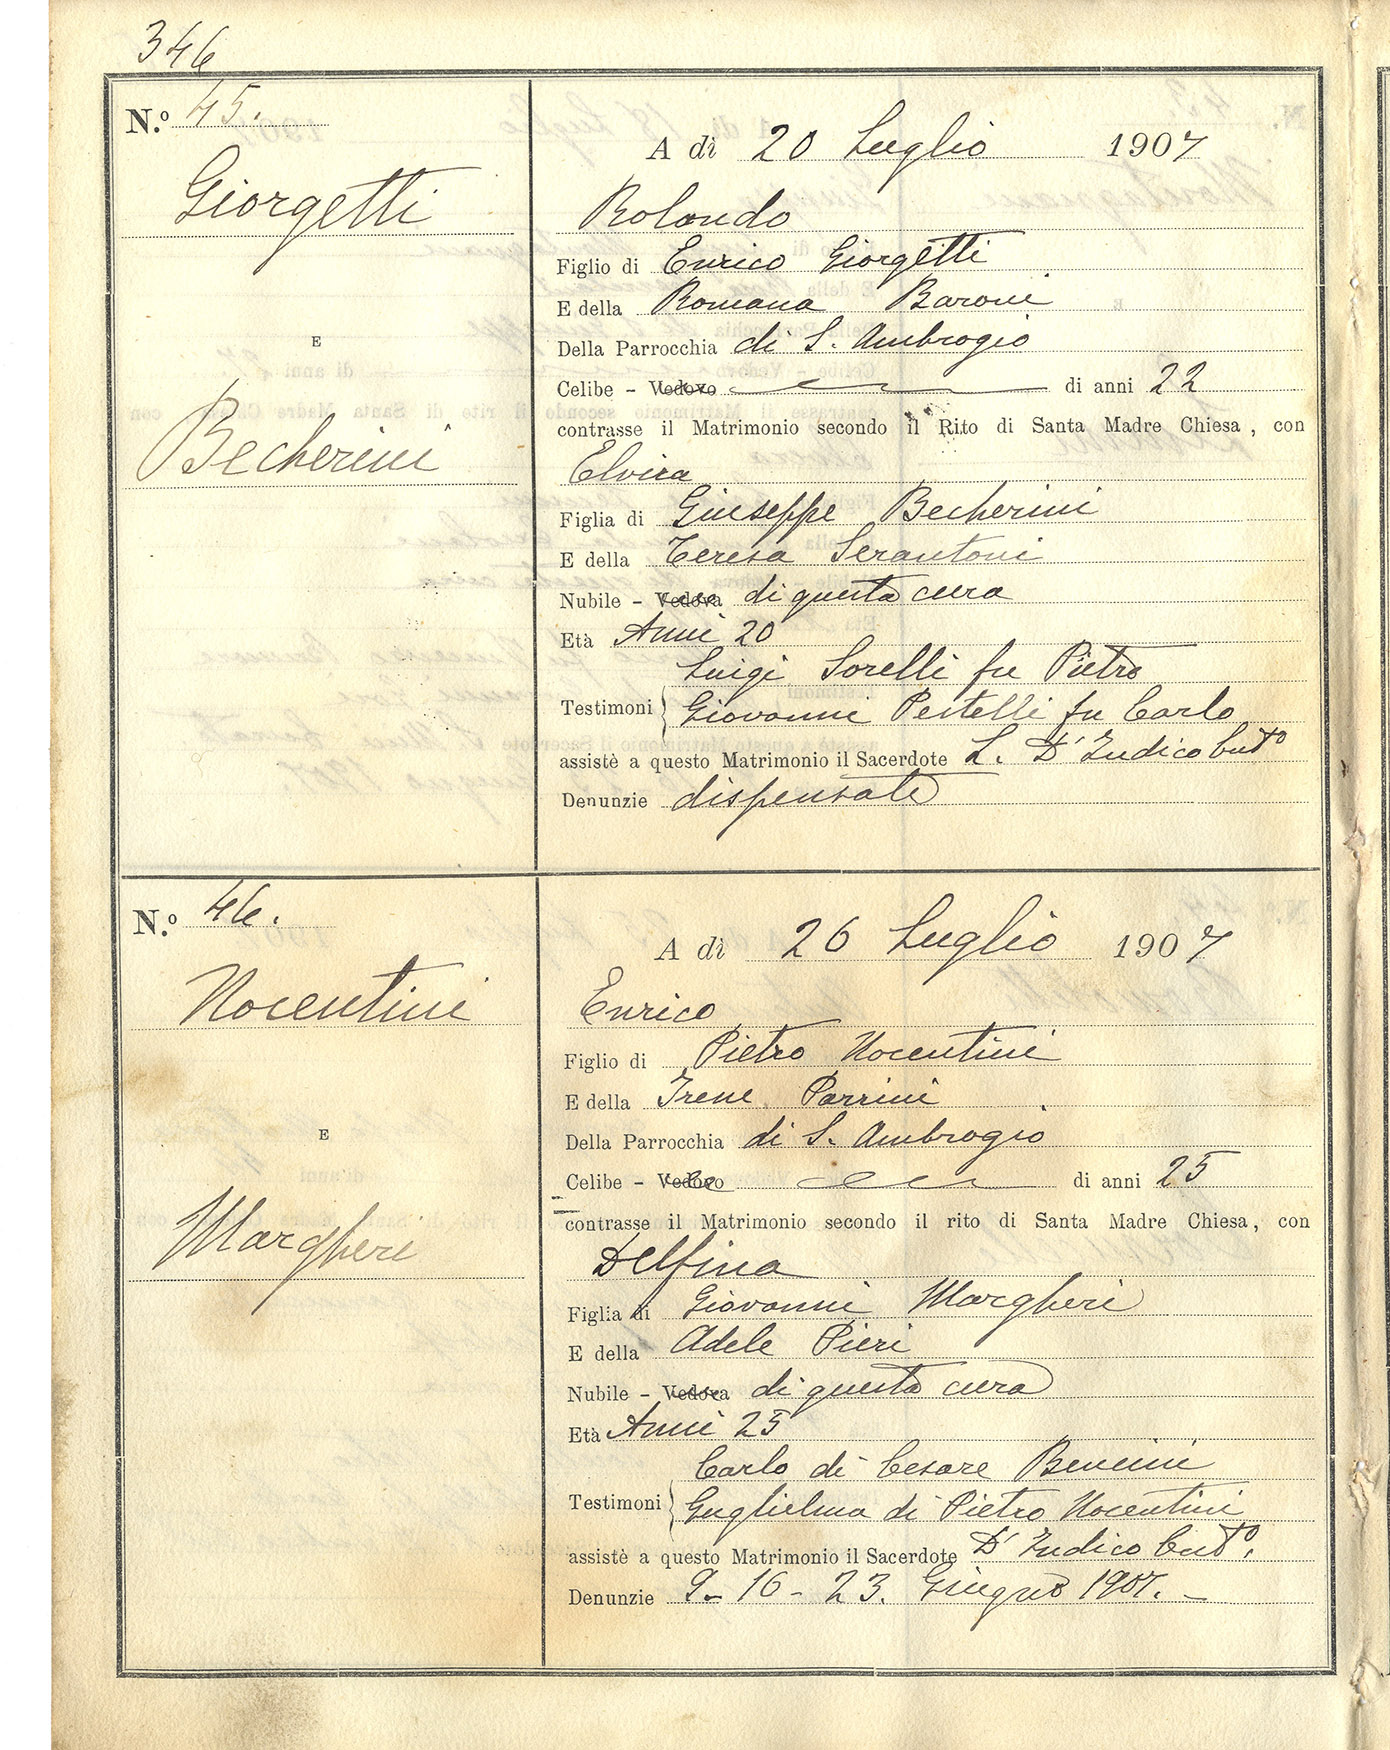 346
N.º 45.
Giorgetti
E
Becherini
A dì 20 Luglio 1907
Rolando
Figlio di Enrico Giorgetti
E della Romana Baroni
Della Parrocchia di S. Ambrogio
Celibe - Vedovo di anni 22
contrasse il Matrimonio secondo il Rito di Santa Madre Chiesa, con
Elvira
Figlia di Giuseppe Becherini
E della Teresa Serantoni
Nubile - Vedova di questa cura
Età Anni 20
Luigi Sorelli fu Pietro
Testimoni Giovanni Pestelli fu Carlo
assistè a questo Matrimonio il Sacerdote L. D'Indico
Denunzie dispensate
N.º 46.
Nocentini
E
Margheri
A dì 26 Luglio 1907
Enrico
Figlio di Pietro Nocentini
E della Irene Parrini
Della Parrocchia di S. Ambrogio
Celibe - Vedovo di anni 25
contrasse il Matrimonio secondo il rito di Santa Madre Chiesa, con
Delfina
Figlia di Giovanni Margheri
E della Adele Pieri
Nubile - Vedova di questa cura
Età Anni 25
Carlo di Cesare Bencini
Testimoni Guglielma di Pietro Nocentini
assistè a questo Matrimonio il Sacerdote D'Indico
Denunzie 9 - 16 - 23. Giugno 1907. -